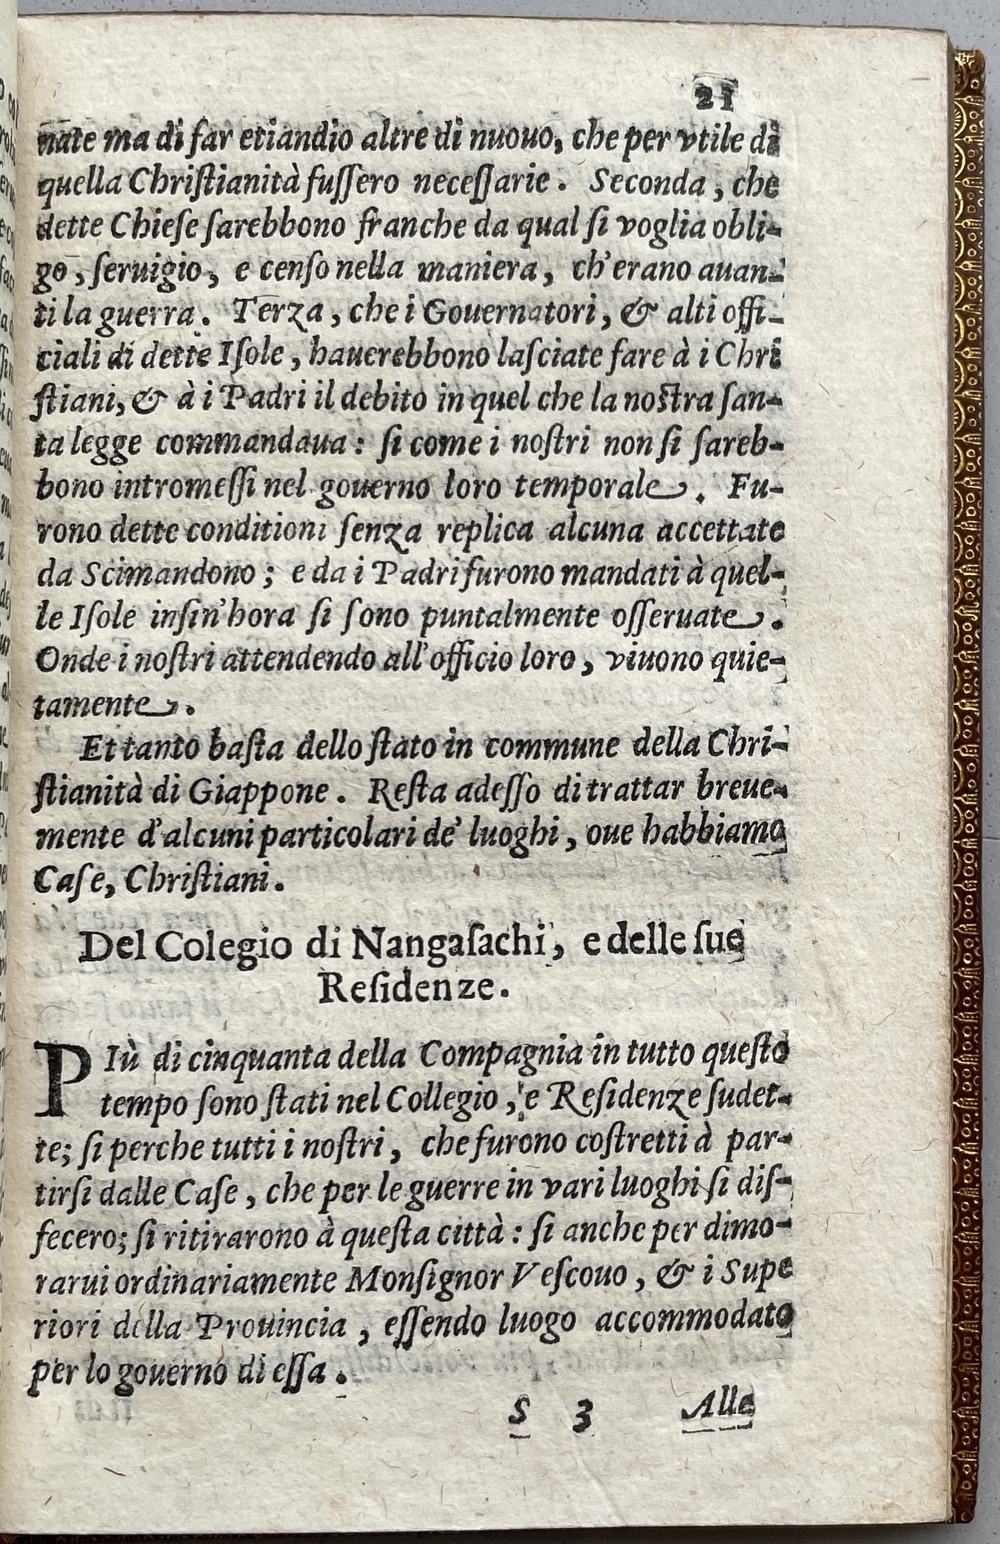 21
nate ma di far etiandio altre di nuouo, che per vtile di
quella Chriſtianità fuſſero neceſſarie. Seconda, che
dette Chieſe ſarebbono franche da qual ſi voglia obli-
go, ſeruigio, e cenſo nella maniera, ch'erano auan-
ti la guerra. Terza, che i Gouernatori, & alti offi-
ciali di dette Iſole, hauerebbono laſciate fare à i Chri
ſtiani, & à i Padri il debito in quel che la noſtra ſan-
ta legge commandaua: ſi come i noſtri non ſi ſareb-
bono intromeſſi nel gouerno loro temporale. Fu-
rono dette conditioni ſenza replica alcuna accettate
da Scimandono; e da i Padri furono mandati à quel-
le Iſole inſin'hora ſi ſono puntalmente oſſeruate.
Onde i noſtri attendendo all'officio loro, viuono quie-
tamente.
Et tanto baſta dello ſtato in commune della Chri-
ſtianità di Giappone. Reſta adeſſo di trattar breue-
mente d'alcuni particolari de' luoghi, oue habbiamo
Caſe, Chriſtiani.
Del Colegio di Nangaſachi, e delle ſue
Reſidenze.
PIù di cinquanta della Compagnia in tutto queſto
tempo ſono ſtati nel Collegio, e Reſidenze ſudet-
te; ſi perche tutti i noſtri, che furono coſtretti à par-
tirſi dalle Caſe, che per le guerre in vari luoghi ſi diſ-
fecero; ſi ritirarono à queſta città: ſi anche per dimo-
rarui ordinariamente Monſignor Veſcouo, & i Supe
riori della Prouincia, eſſendo luogo accommodato
per lo gouerno di eſſa.
S 3 Alle